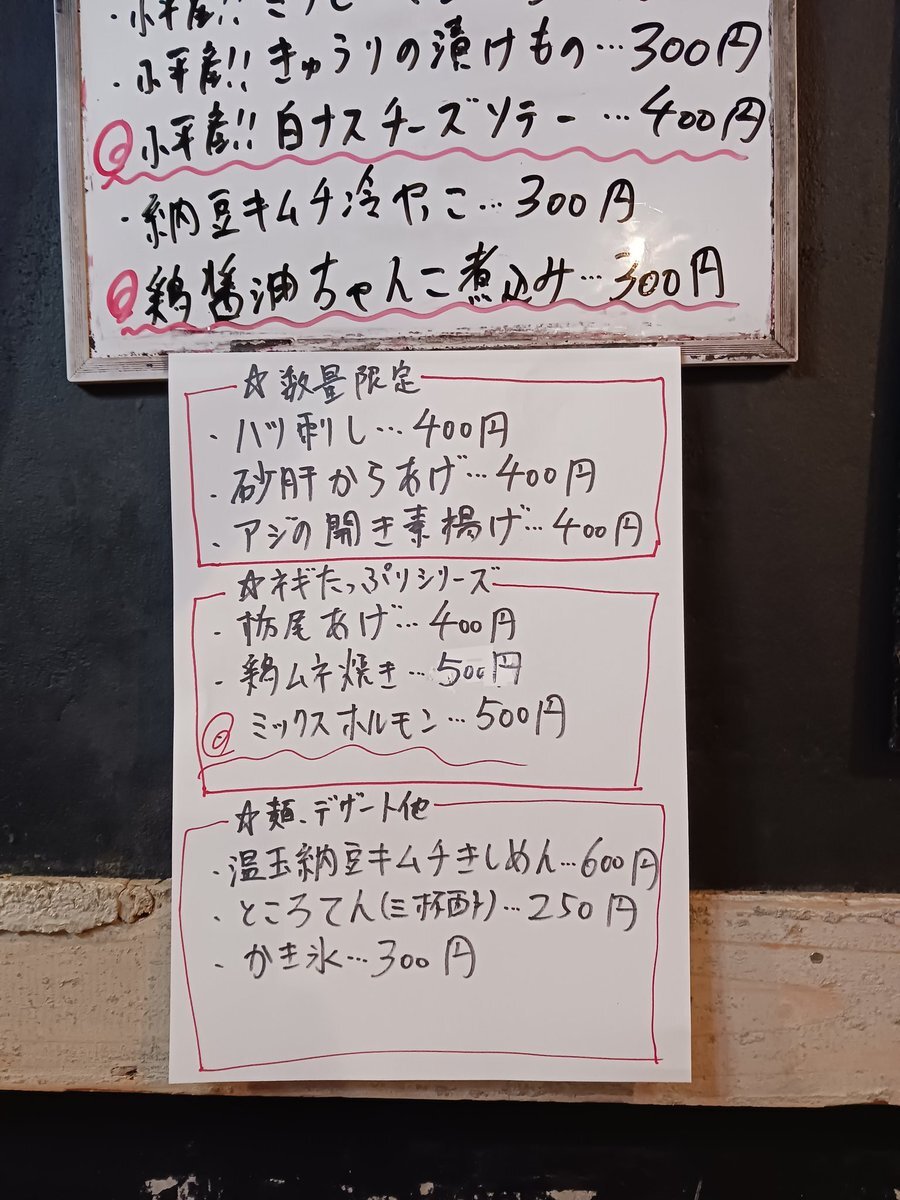 ・小平産!!きゅうりの漬けもの…300円
◎小平産!!白ナスチーズソテー…400円
・納豆キムチ冷やっこ…300円
◎鶏醤油ちゃんこ煮込み…300円
☆数量限定
・ハツ刺し…400円
・砂肝からあげ…400円
・アジの開き素揚げ…400円
☆ネギたっぷりシリーズ
・栃尾あげ…400円
・鶏ムネ焼き…500円
◎ミックスホルモン…500円
☆麺、デザート他
・温玉納豆キムチきしめん…600円
・ところてん(三杯酢)…250円
・かき氷…300円